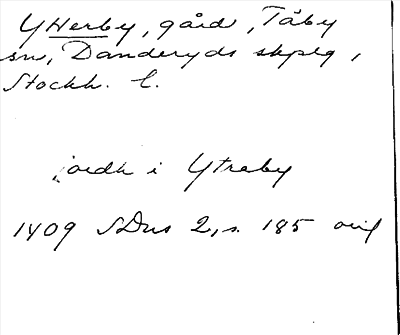 Ytterby, gård, Täby
sn, Danderyds skplg,
Stockh. l.
jordh i Ytraby
1409 SDns 2, s. 185 orig